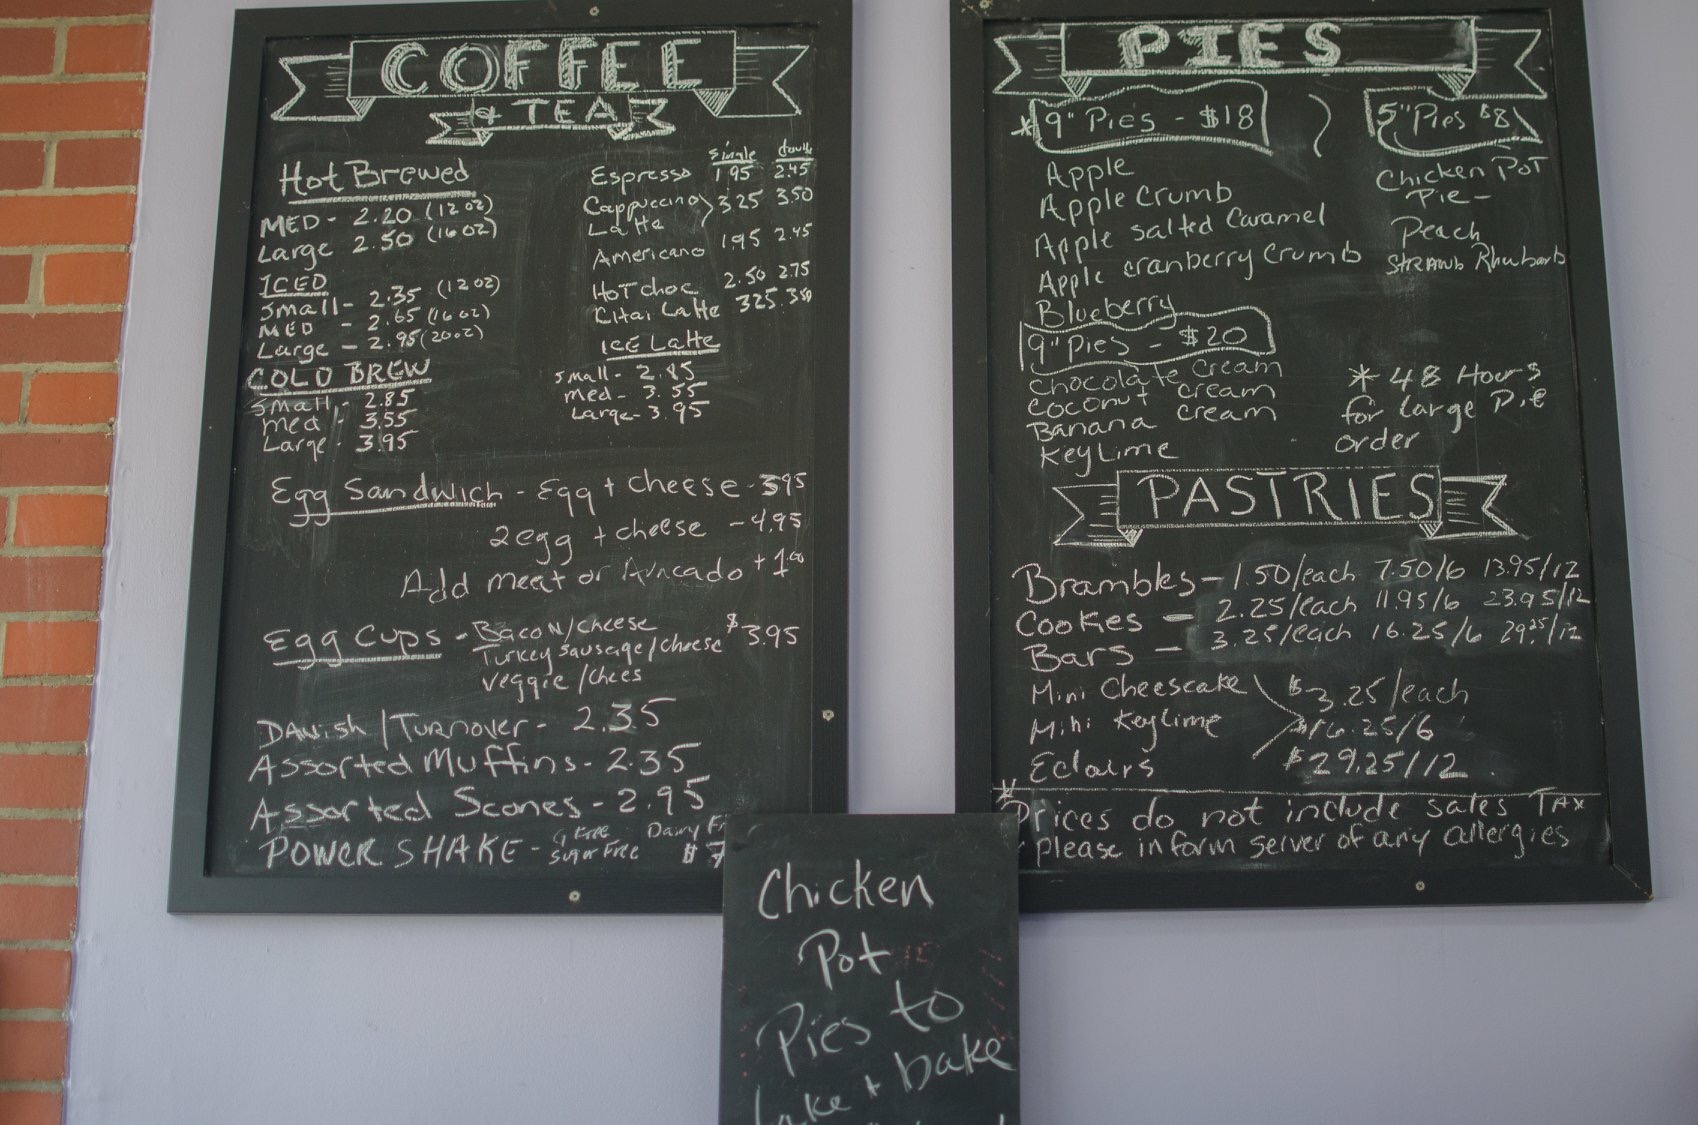 COFFEE
& TEA
Hot Brewed
MED - 2.20 (12 oz)
Large 2.50 (16 oz)
ICED
Small - 2.35 (12 oz)
MED - 2.65 (16 oz)
Large - 2.95 (20 oz)
COLD BREW
Small - 2.85
Med - 3.55
Large - 3.95
single double
Espresso 1.95 2.45
Cappuccino 3.25 3.50
Latte
Americano 1.95 2.45
Hot choc 2.50 2.75
Chai Latte 3.25 3.50
ICE Latte
Small - 2.85
med - 3.55
Large - 3.95
Egg Sandwich - Egg + cheese - 3.95
2 egg + cheese - 4.95
Add meat or Avacado + 1.00
Egg Cups - Bacon/cheese $3.95
Turkey Sausage/cheese
Veggie/Chees
Danish/Turnover - 2.35
Assorted Muffins - 2.35
Assorted Scones - 2.95
POWER SHAKE - G Free Dairy
Sugar Free $7
PIES
* 9" Pies - $18
Apple
Apple Crumb
Apple Salted Caramel
Apple cranberry Crumb
Blueberry
9" Pies - $20
Chocolate Cream
Coconut cream
Banana cream
Key Lime
5" Pies $8
Chicken Pot
Pie -
Peach
Strawb Rhubarb
* 48 Hours
for Large Pie
order
PASTRIES
Brambles - 1.50/each 7.50/6 13.95/12
Cookies - 2.25/each 11.95/6 23.95/12
Bars - 3.25/each 16.25/6 29.25/12
Mini Cheescake $3.25/each
Mini Key Lime $16.25/6
Eclairs $29.25/12
* Prices do not include sales Tax
* please inform server of any allergies
Chicken
Pot
Pies to
take + bake